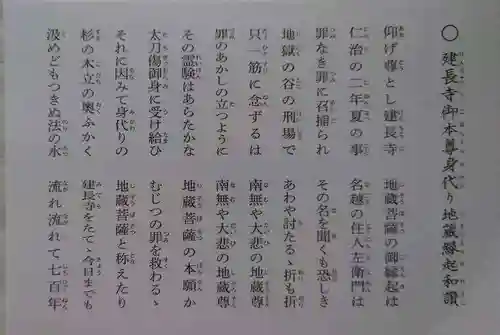 ○ 建長寺御本尊身代り地蔵縁起和讃
仰げ尊とし建長寺 地蔵菩薩の御縁起は
仁治の二年夏の事 名越の住人左衛門は
罪なき罪に召捕られ その名を聞くも恐しき
地獄の谷の刑場で あわや討たるゝ折も折
只一筋に念ずるは 南無や大悲の地蔵尊
罪のあかしの立つように 南無や大悲の地蔵尊
その霊験はあらたかな 地蔵菩薩の本願か
太刀傷御身に受け給ひ むじつの罪を救わるゝ
それに因みて身代りの 地蔵菩薩と称えたり
杉の木立の奥ふかく 建長寺をたてゝ今日までも
汲めどもつきぬ法の水 流れ流れて七百年